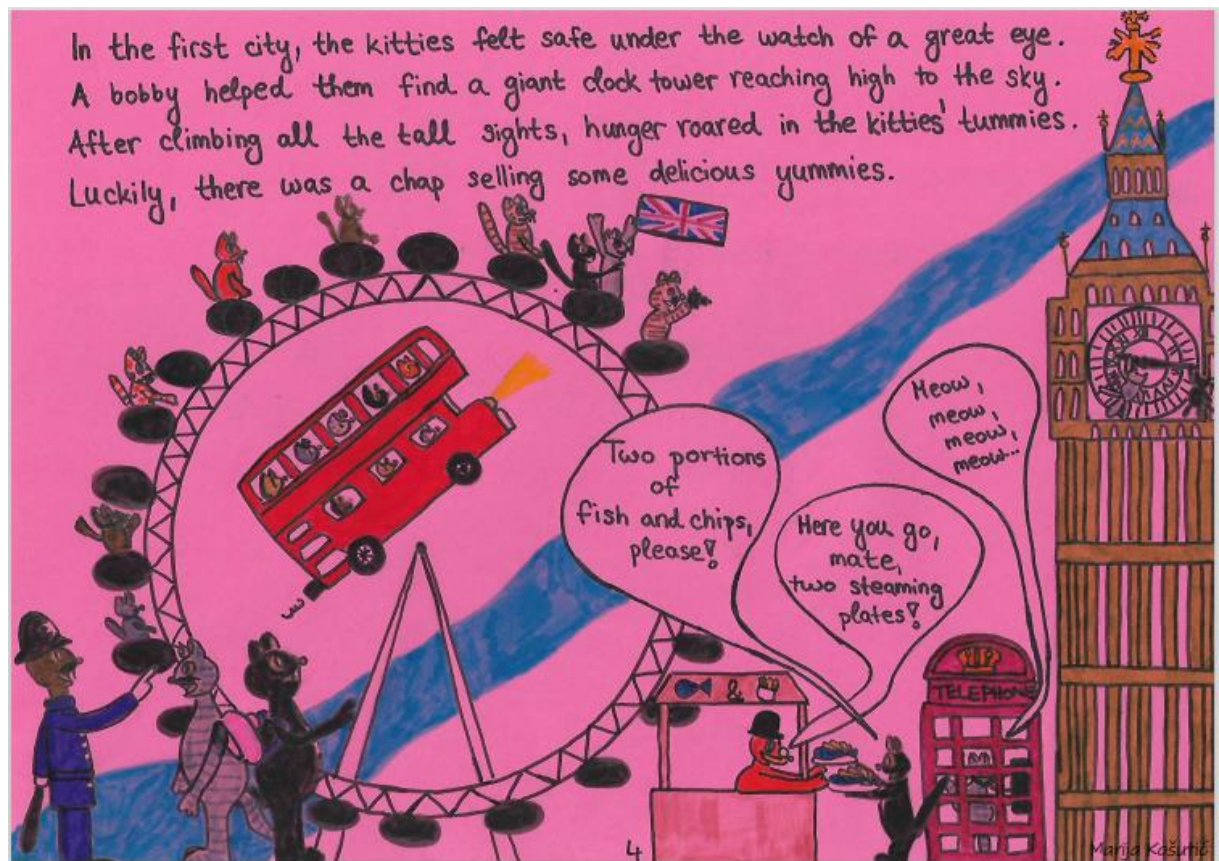 In the first city, the kitties felt safe under the watch of a great eye.
A bobby helped them find a giant clock tower reaching high to the sky.
After climbing all the tall sights, hunger roared in the kitties' tummies.
Luckily, there was a chap selling some delicious yummies.
Two portions
of
fish and chips,
please!
Here you go,
mate,
two steaming
plates!
Meow,
meow,
meow,
meow...
&
TELEPHONE
4
Marija Košutić